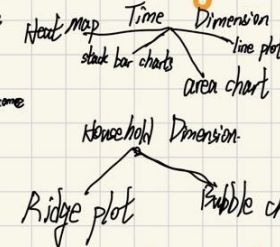 Time Dimension
Heat map
stack bar charts
line plot
area chart
Household Dimension.
Ridge plot
Bubble c